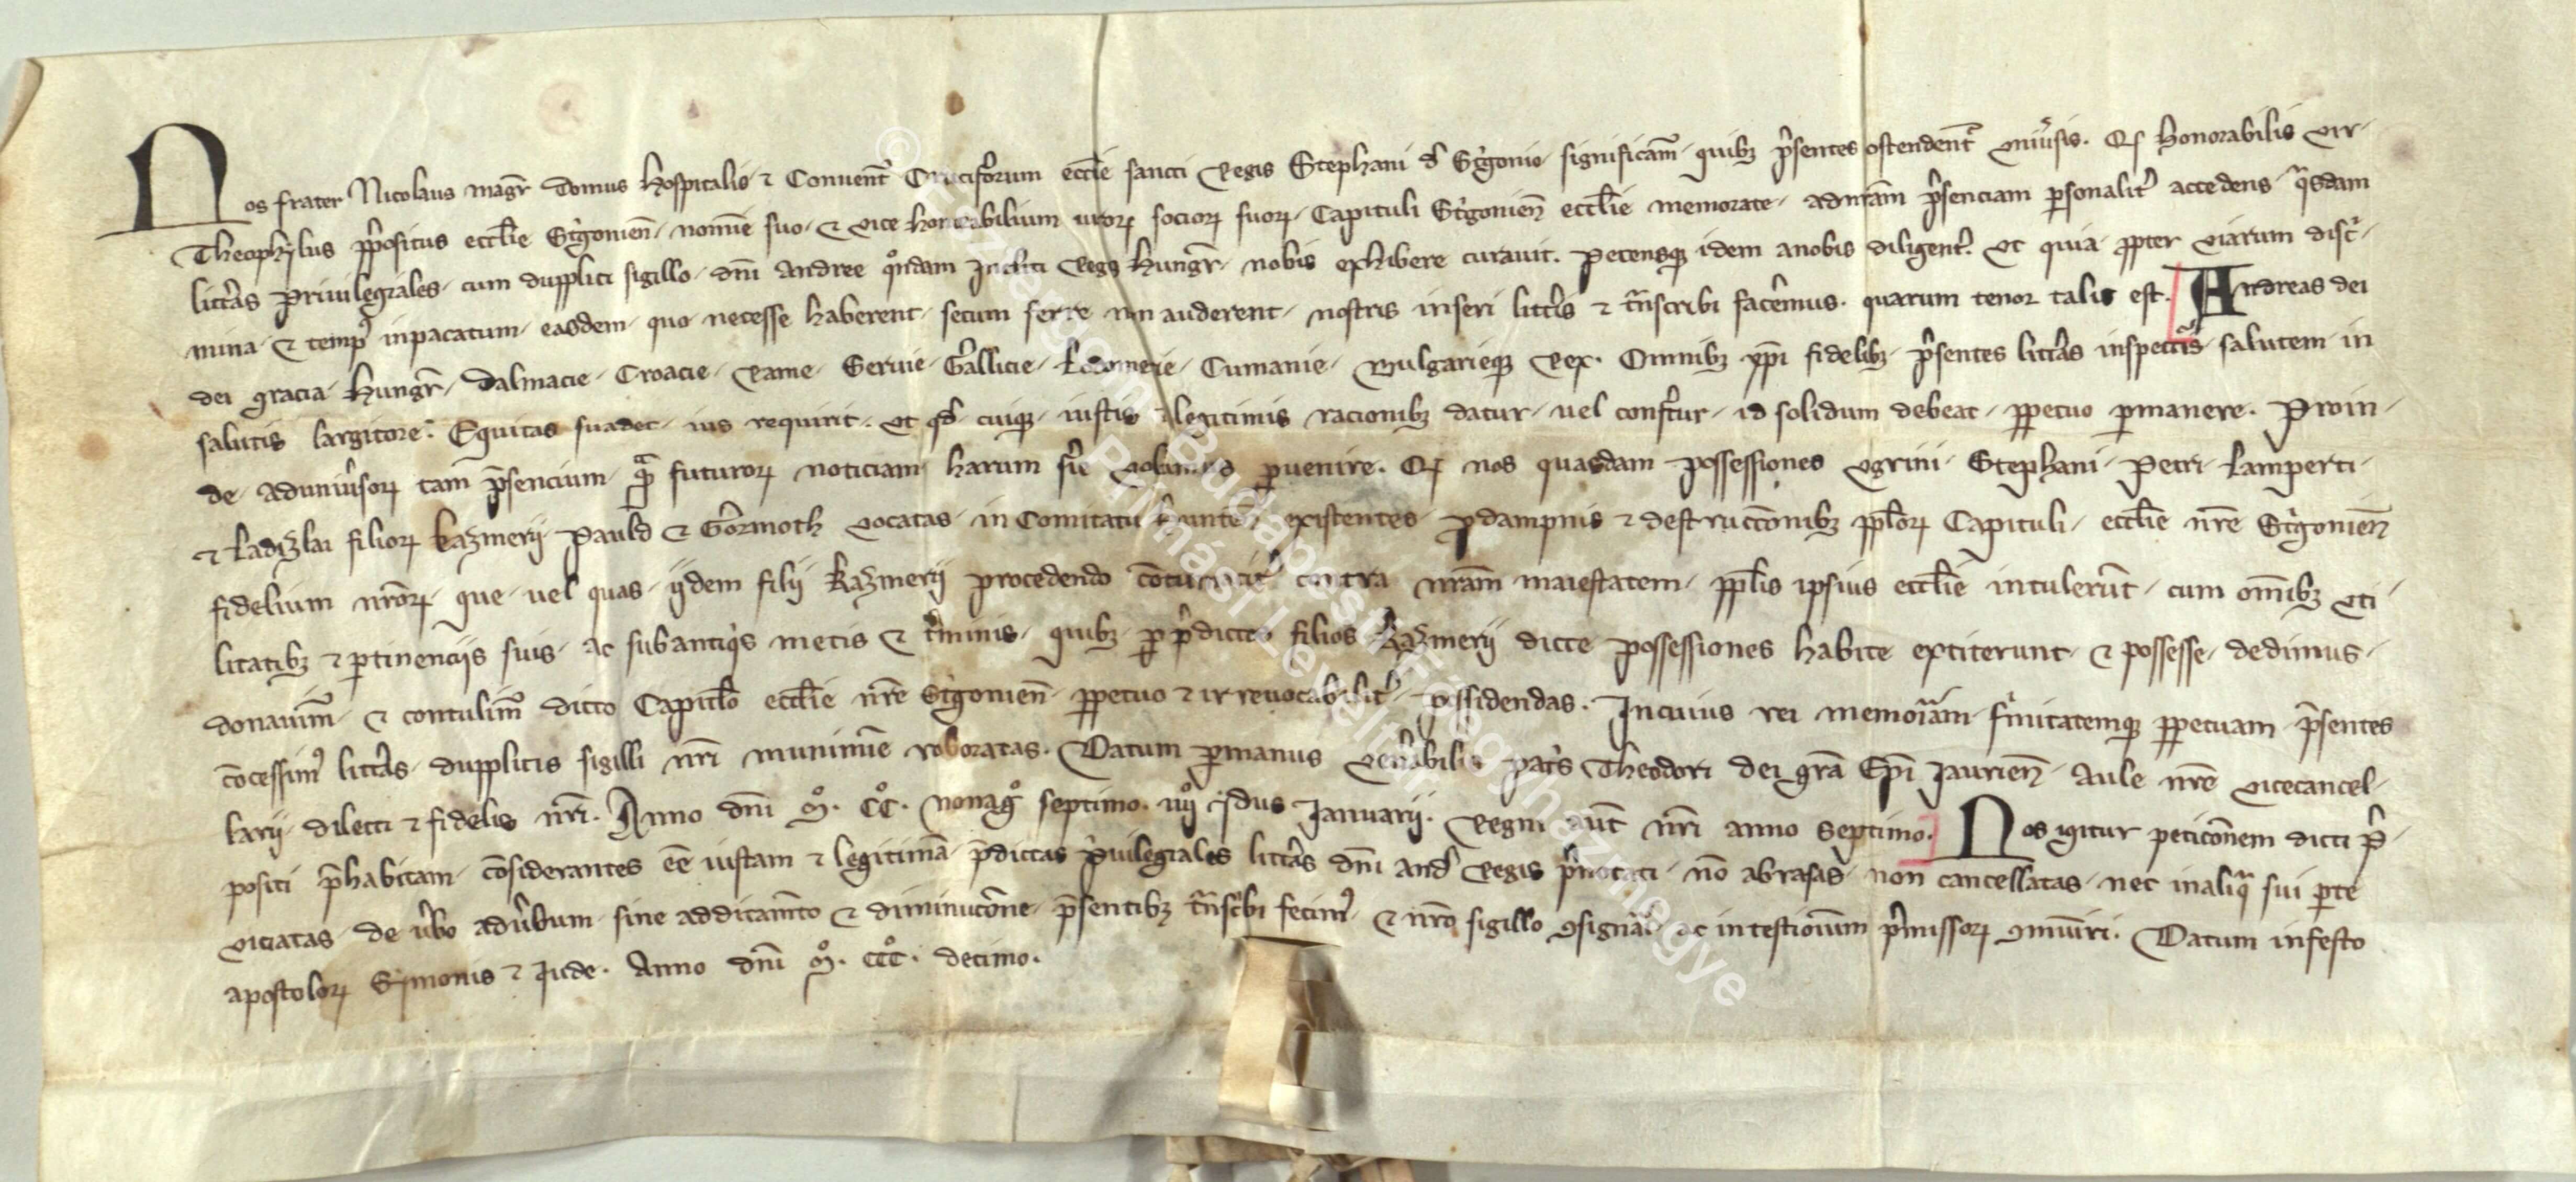 Nos frater Nicolaus magr̄ domus hospitalis ⁊ Conuent᷑ Crucif̓orum ecc̄lie sancti Regis Stephani d̓ St̓gonio significam᷑ quibꝫ p̓sentes ostendent᷑ vniu̓sis. Qꝫ honorabilis vir
Theophylus pp̓ositus eccl̄ie St̓gonien̄ nomīe suo ⁊ vice honorabilium uiroꝝ socioꝝ suoꝝ Capituli St̓gonien̄ eccl̄ie memorate adnr̄am p̓senciam ꝑsonalit̓ accedens q̓sdam
litt̓as priuilegiales cum dupplici sigillo dn̄i Andree qͦndam Incliti Regꝭ Hungar̄ nobis exhibere curauit. petensqꝫ idem anobis diligent̓. vt quia ꝓpter viarum disc̓
mina ⁊ tempꝰ inpacatum easdem quo necesse haberent secum ferre non auderent nostris inseri litt̓is ⁊ tn̄scribi facem̓us. quarum tenor talis est. Andreas dei
dei gracia Hungar̄ Dalmacie Croacie Rame Seruie Gallicie Lodomerie Cumanie Bulgarieqꝫ Rex. Omnibꝫ xp̄i fidelibꝫ p̓sentes litt̓as inspect̓is salutem in
salutis largitore. Equitas suadet ius requirit. vt qd̓ cuiqꝫ iustis ⁊ legitimis racionibꝫ datur uel conf̓tur id solidum debeat ꝑpetuo ꝑmanere. Proin
de aduniu̓soꝝ tam p̄sencium q̄ futuroꝝ noticiam harum s̓ie volumus ꝑuenire. Qꝫ nos quasdam possessiones vgrini Stephani Petri Lamperti
⁊ Ladizlai filioꝝ Kazmerij Pauld ⁊ Gormoth vocatas in Comitatu Huntens̓ existentes ꝓ dampnis ⁊ destructōnibꝫ ppl̄oꝝ Capituli eccl̄ie nr̄e St̓gonien̄
fidelium nr̄oꝝ que uel quas ijdem filij Kazmerij procedendo cōtumacit̓ contra nr̄am maiestatem ppl̄is ipsius eccl̄ie intulerūt cum om̄ibꝫ vti
litatibꝫ ⁊ ꝑtinencijs suis ac subantiq̓s metis ⁊ t̓minis quibꝫ ꝑ p̓dictos filios Kazmerij dicte possessiones habite extiterunt ⁊ possesse dedimus
donauim᷑ ⁊ contulim᷑ dicto Capitl̄o eccl̄ie nr̄e St̓gonien̄ ꝑpetuo ⁊ irreuocabilit̓ possidendas. Incuius rei memoriām f̓mitatemqꝫ ꝑpetuam p̓sentes
cōcessimꝰ litt̓as dupplicis sigilli nr̄i munimīe roboratas. Datum ꝑmanus ven̓abilis pat̓s Theodori dei gr̄a Ep̄i Iaurien̄ Aule nr̄e vicecancel
larii dilecti ⁊ fidelis nr̄i. Anno dn̄i Mͦ. CCͦ. nonagͦ septimo. iiijͦ ydus Ianuarii. Regni aūt nr̄i anno septimo. Nos igitur peticōnem dicti p̄
positi p̄habitam cōsiderantes eē iustam ⁊ legitimā p̄dictas p̓uilegiales litt̓as dn̄i And̓ Regis p̓notati nō abrasas non cancellatas nec inaliq̓ sui ꝑte
viciatas de ūbo adūbum sine additamēto ⁊ diminucōne p̄sentibꝫ tn̄sc̓bi fecimꝰ ⁊ nr̄o sigillo ꝯsignari ac intestioīum p̓missoꝝ ꝯmūiri. Datum infesto
apostoloꝝ Symonis ⁊ Iude. Anno dn̄i Mͦ. CCCͦ. decimo.
© Esztergom-Budapesti Főegyházmegye
Prímási Levéltár